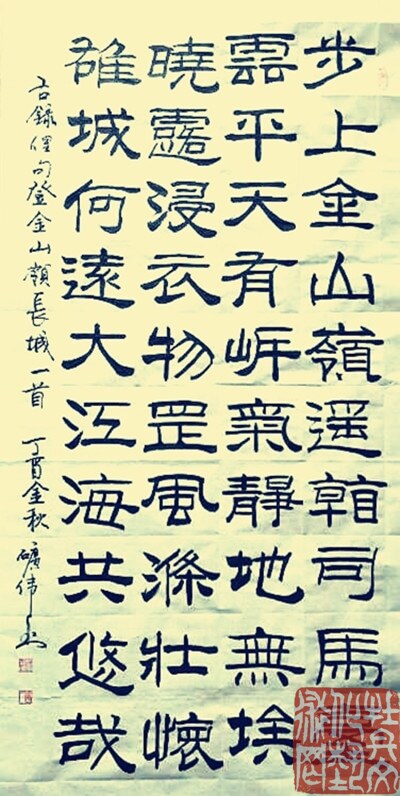 步上金山嶺遥司馬
雲平天有岸氣靜地無埃
曉露浸衣物罡風滌壯懷
雄城何遠大江海共悠哉
右錄俚句登金山嶺長城一首 丁酉金秋 礦偉書